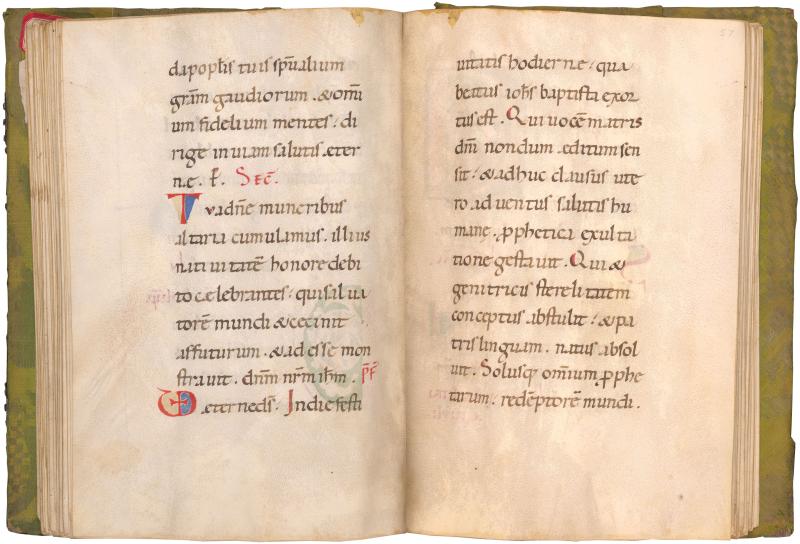 da pop̄lis tuis sp̄ualium
gr̄am gaudiorum . & om̄i
um fidelium mentes : di
rige in uiam salutis æter
nę . P̄. SEC̄.
Tua dn̄e muneribus
altaria cumulamus . illius
natiuitatē honore debi
to cęlebrantes : qui saluа
torē mundi & cecinit
affuturum . & adesse mon
strauit . dn̄m nr̄m ih̄m . P̄F
VD æterne ds̄ . In die festi
uitatis hodiernę : qua
beatus ioh̄s baptista exor
tus est . Qui uocē matris
dn̄i nondum æditum sen
sit : & adhuc clausus ute
ro . aduentus salutis hu
manę . ꝓphetica exulta
tione gestauit . Qui &
genitricis sterelitatem
conceptus abstulit : & pa
tris linguam . natus absol
uit . Solusq; omnium ꝓphe
tarum . redēptorē mundi .
57